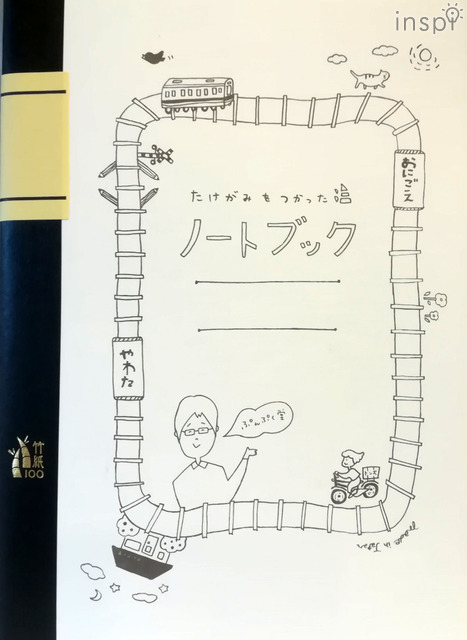 inspi
おにごえ
たけがみをつかった
ノートブック
やわた
ぷんぷく堂
竹紙
100
made in Japan